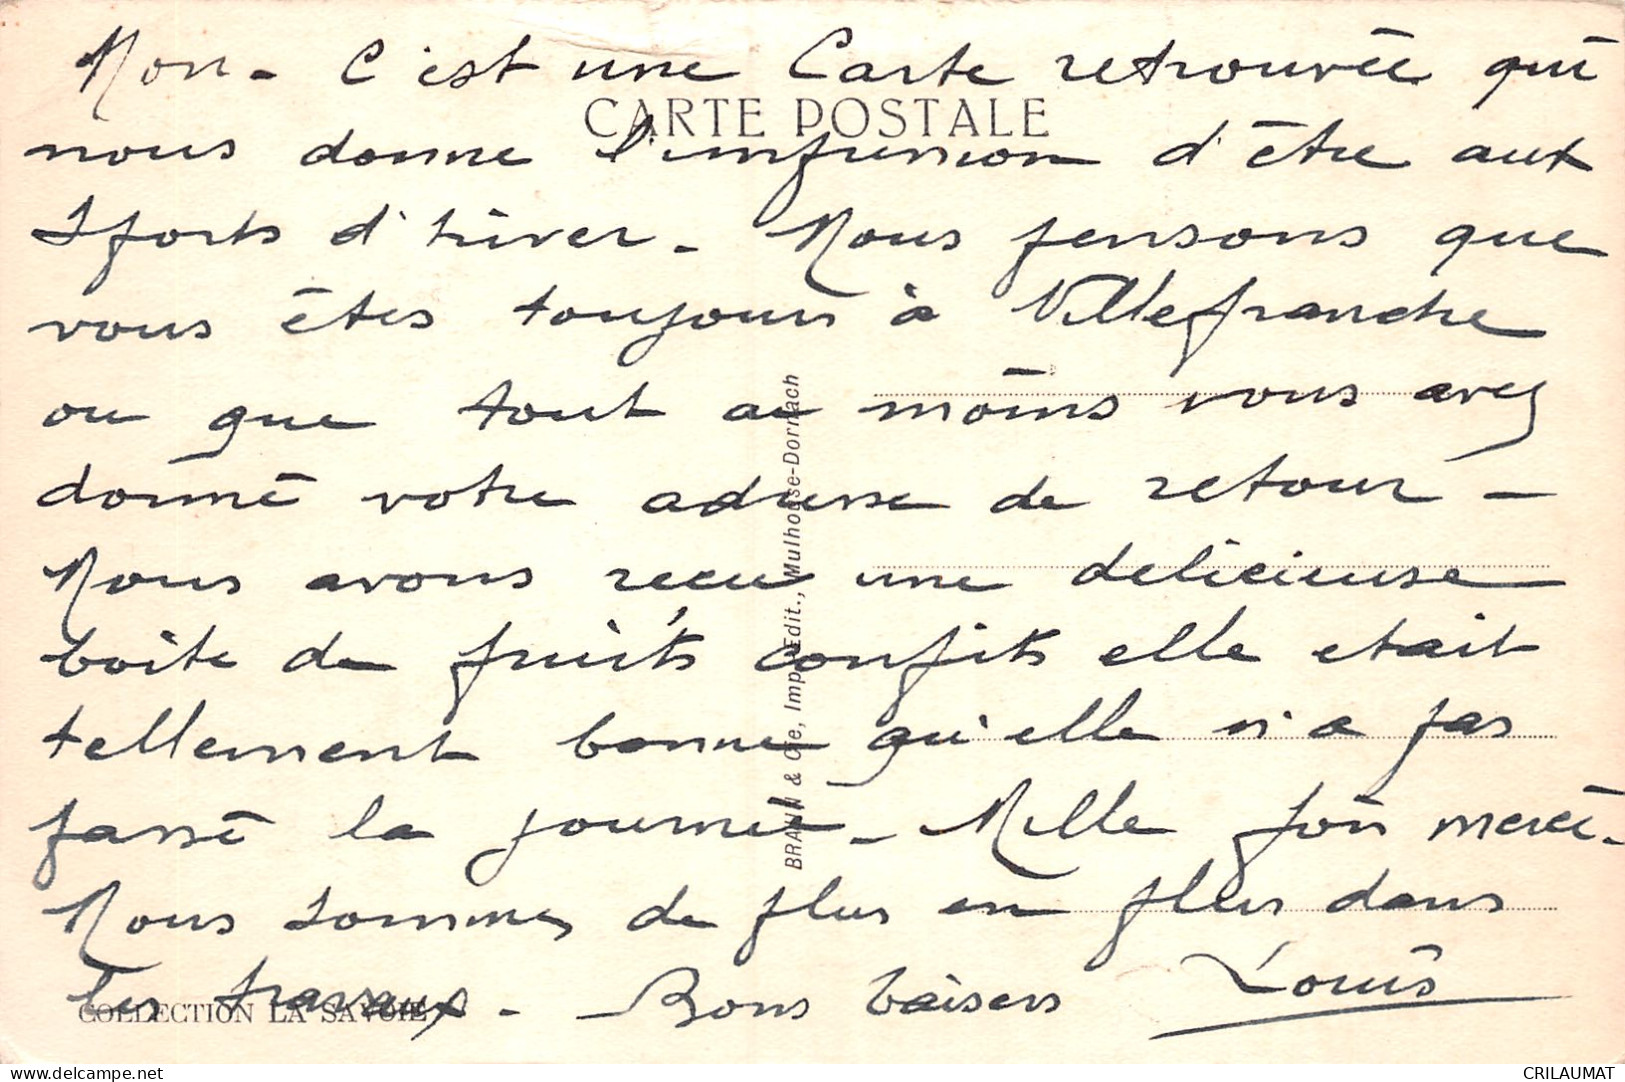 Non - C'est une Carte retrouvée qui
CARTE POSTALE
nous donne l'impression d'être aux
Sports d'hiver - Nous pensons que
vous êtes toujours à Villefranche
ou que tout au moins vous avez
donné votre adresse de retour -
Nous avons reçu une delicieuse
boite de fruits confits elle etait
tellement bonne qu'elle n'a pas
passé la journée - Mille fois merci -
Nous sommes de plus en plus dans
les travaux - Bons baisers Louis
COLLECTION LA SAVOIE
BRAUN & Cie, Imp.-Edit., Mulhouse-Dornach
delcampe.net
CRILAUMAT